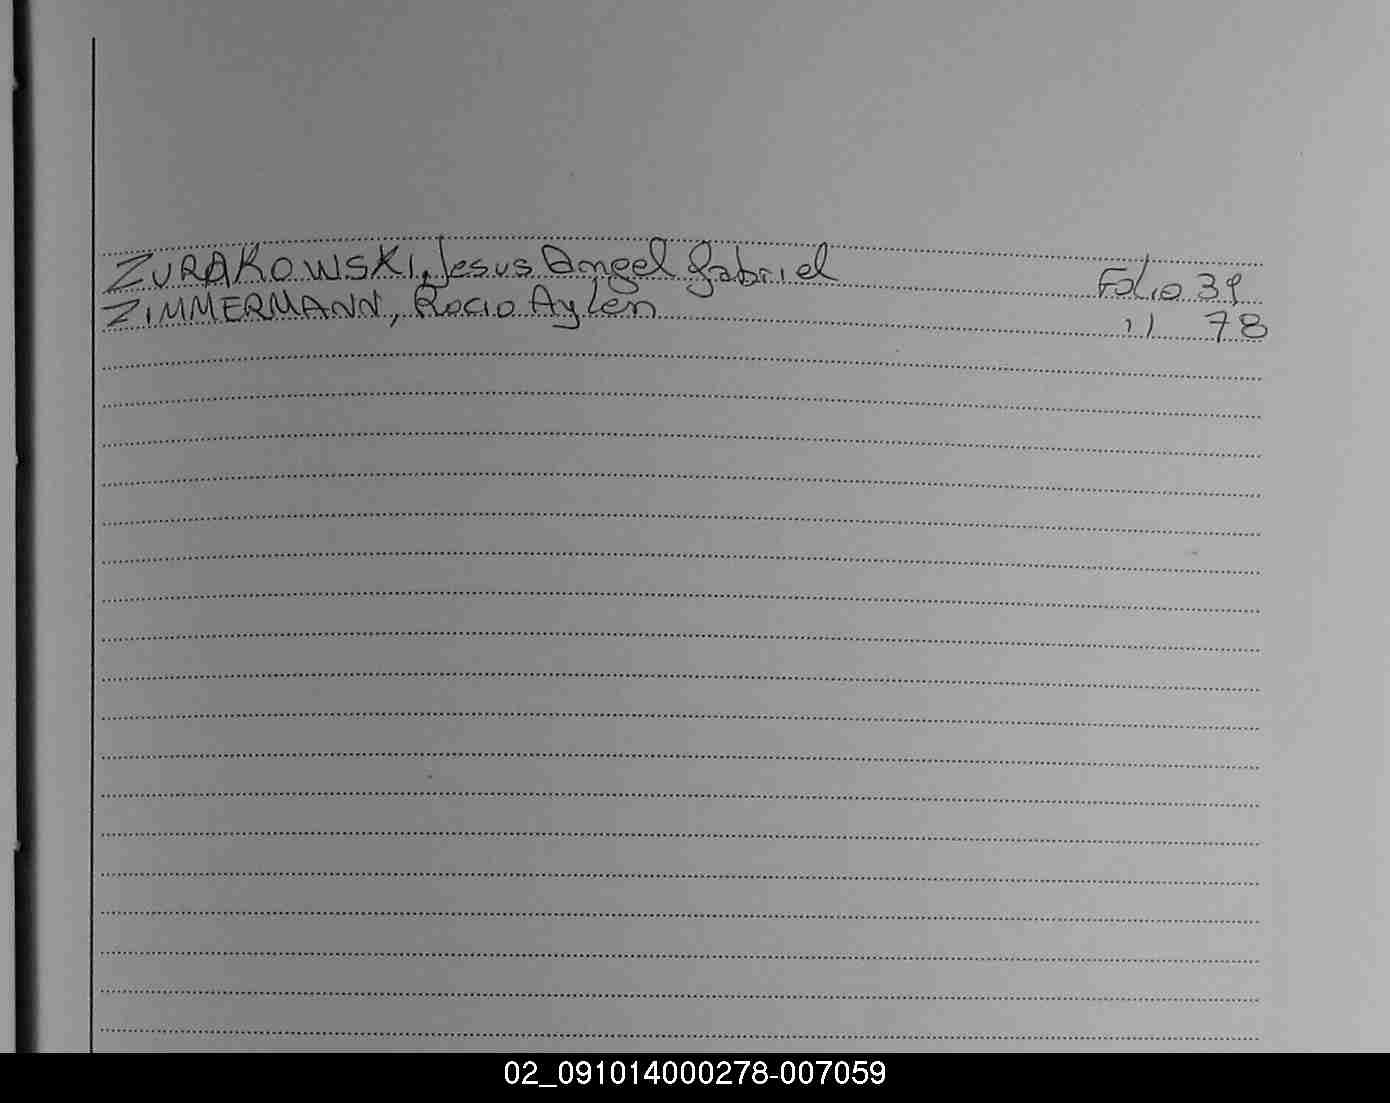 ZURAKOWSKI, Jesus Angel Gabriel Folio 39
ZIMMERMANN, Rocio Aylen 11 78
02_091014000278-007059